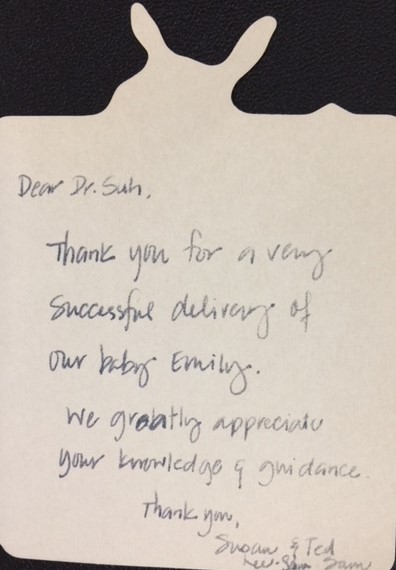 Dear Dr. Suh,
Thank you for a very
Successful delivery of
our baby Emily.
We greatly appreciate
your knowledge & guidance.
Thank you,
Susan & Ted